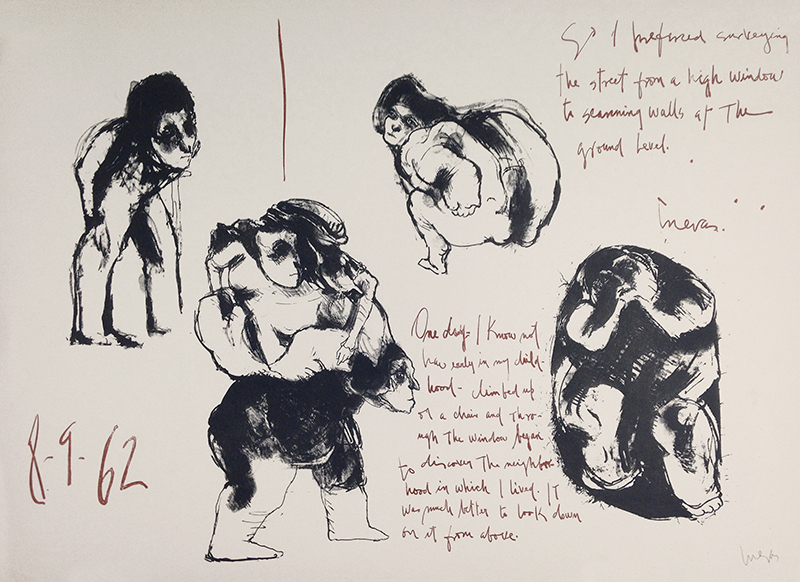 So I preferred surveying
the street from a high window
to scanning walls at The
ground level.
Cuevas.
One day- I Know not
how early in my child-
hood- climbed up
on a chair and Thro-
ugh The window began
to discover The neighbor
hood in which I lived. IT
was much better to look down
on it from above.
8-9-62
Cuevas